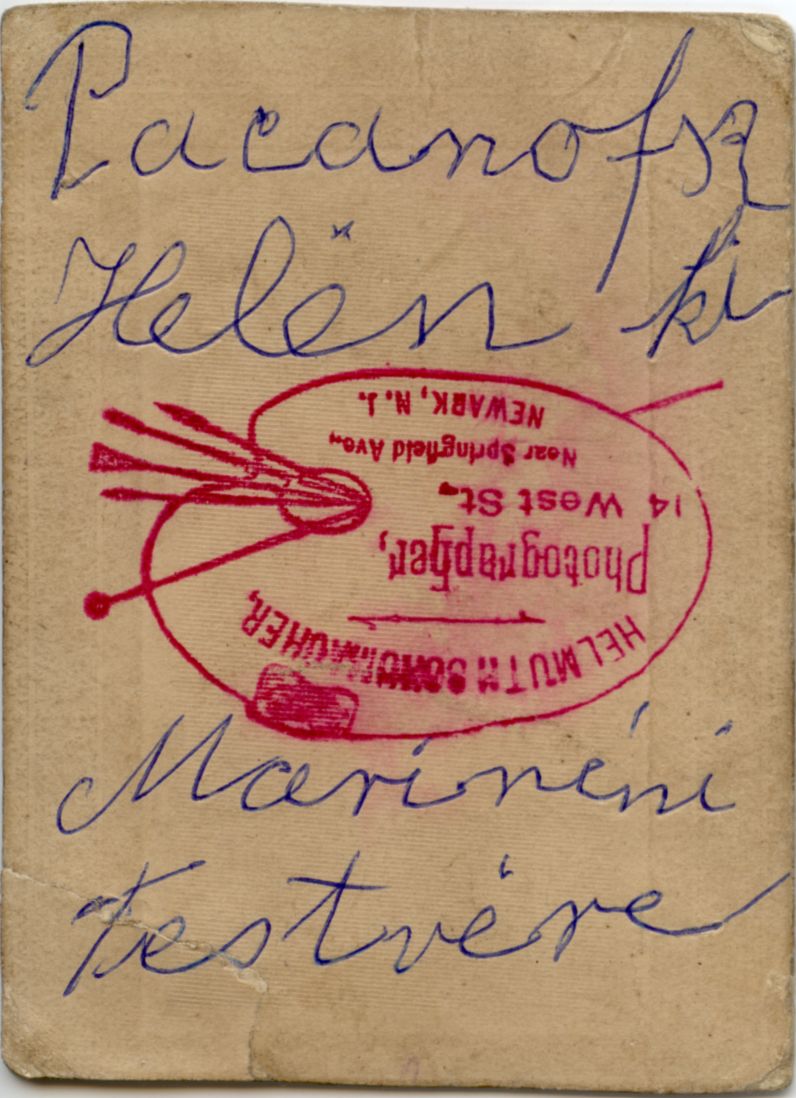 Pacanofsz
Helén ki
HELMUTH SCHUMACHER,
Photographer,
14 West St.
Near Springfield Ave.,
NEWARK, N.J.
Marinéni
testvére